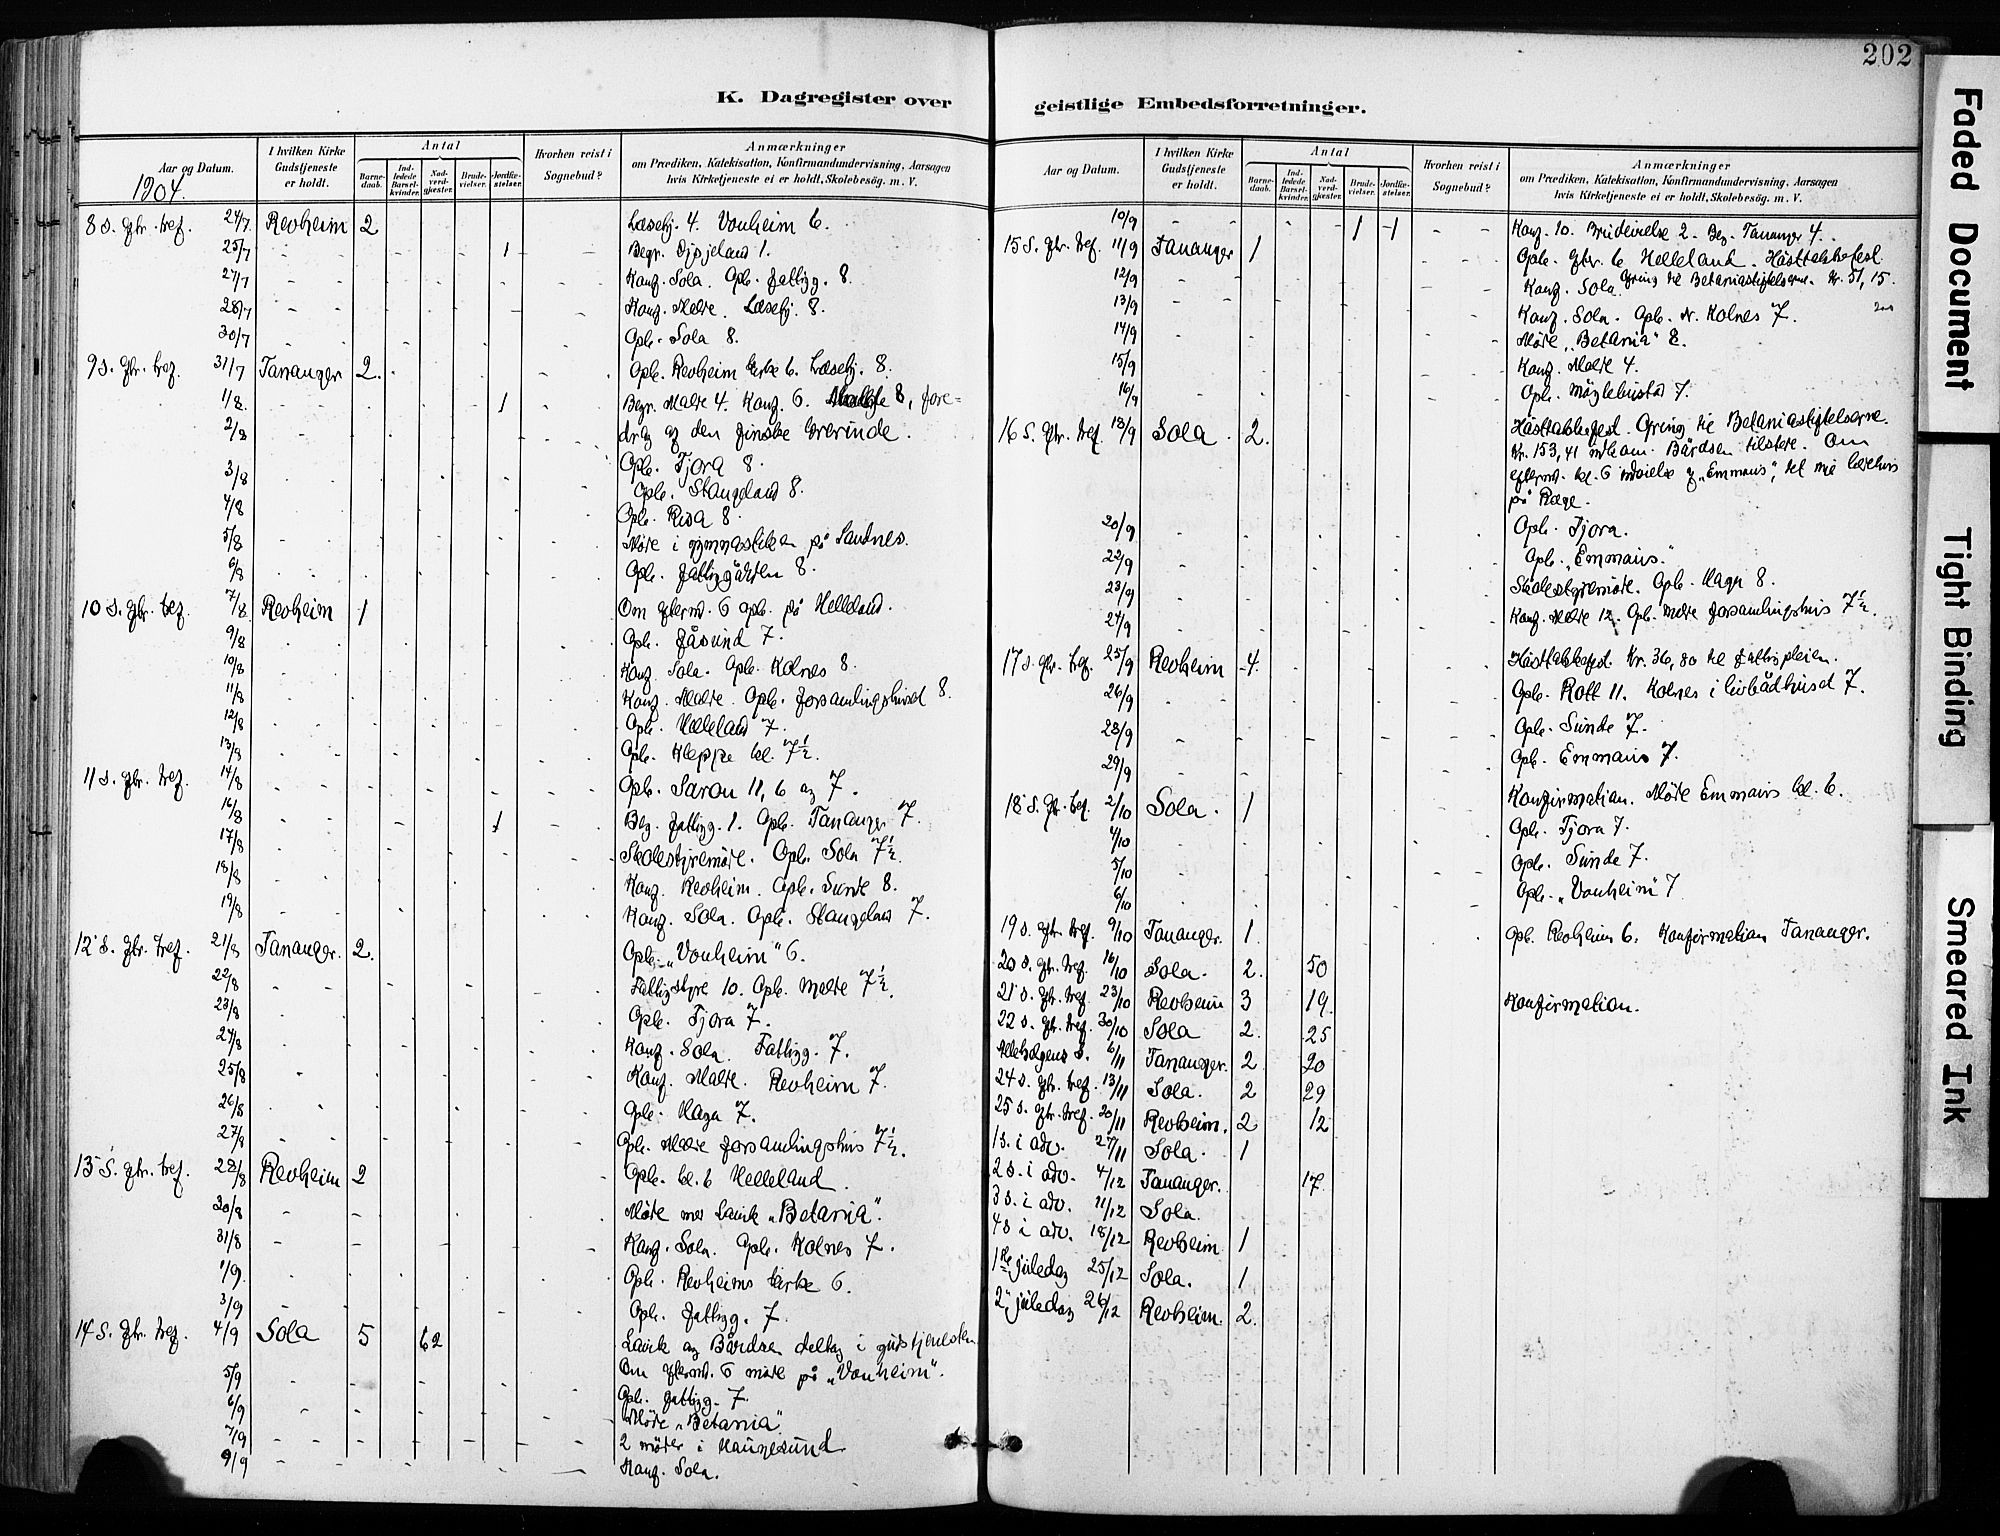 202
K. Dagregister over geistlige Embedsforretninger.
Aar og Datum. I hvilken Kirke Gudstjeneste er holdt. Antal Barnedaab. Indledede Barselkvinder. Nadverdgjester. Brudevielser. Jordfæstelser. Hvorhen reist i Sognebud? Anmærkninger om Prædiken, Katekisation, Konfirmandundervisning, Aarsagen hvis Kirketjeneste ei er holdt, Skolebesög. m. V.
1904.
8 s. eftr. tref. 24/7 Revheim 2 Læsehj. 4. Vonheim 6.
25/7 1 Begr. 1.
27/7 Konf. Sola. Opb. fattigg. 8.
28/7 Konf. Malde. Læsehj. 8.
30/7 Opb. Sola 8.
9 s. eftr. tref. 31/7 Tananger 2. Opb. Revheim kirke 6. Læsehj. 8.
1/8. 1 Begr. Malde 4. Konf. 6. 8, fore=
2/8 drag af den finske
3/8 Opb. Tjora 8.
Opb. Stangeland 8.
4/8 Opb. Risa 8.
5/8 Möde i på Sandnes.
6/8 Opb. fattiggården 8.
10 s. eftr. tref. 7/8 Revheim 1 Om efterm. 6 opb. på Helleland.
9/8 Opb. Jåsund 7.
10/8 Konf. Sola. Opb. Kolnes 8.
11/8 Konf. Malde. Opb. forsamlingshuset 8.
12/8 Opb. Helleland 7.
13/8 Opb. Kleppe kl. 7½.
11 s. eftr. tref. 14/8 Opb. Saron 11, 6 og 7.
16/8 1 Beg. fattigg. 1. Opb. Tananger 7.
17/8 Skolestyremöde. Opb. Sola 7½.
18/8 Konf. Revheim. Opb. Sunde 8.
19/8 Konf. Sola. Opb. Stangeland 7.
12' s. eftr. tref. 21/8 Tananger. 2. Opb. "Vonheim" 6.
22/8 Fattigstyre 10. Opb. Malde 7½.
23/8 Opb. Tjora 7.
24/8 Konf. Sola. Fattigg. 7.
25/8 Konf. Malde. Revheim 7.
26/8 Opb. Haga 7.
27/8 Opb. Malde forsamlingshus 7½.
13' s. eftr. tref. 28/8 Revheim 2 Opb. kl. 6 Helleland.
30/8 Möde med Lavik "Betania".
31/8 Konf. Sola. Opb. Kolnes 7.
1/9. Opb. Revheims kirke 6.
3/9 Opb. fattigg. 7.
14 s. eftr. tref. 4/9 Sola 5 62 Lavik og Bårdsen deltog i gudstjenesten
Om efterm. 6 möde på "Vonheim".
5/9 Opb. fattigg. 7.
6/9 Möde "Betania".
7/9 2 möder i Haugesund
9/9 Konf. Sola.
Aar og Datum. I hvilken Kirke Gudstjeneste er holdt. Antal Barnedaab. Indledede Barselkvinder. Nadverdgjester. Brudevielser. Jordfæstelser. Hvorhen reist i Sognebud? Anmærkninger om Prædiken, Katekisation, Konfirmandundervisning, Aarsagen hvis Kirketjeneste ei er holdt, Skolebesög. m. V.
10/9 1 1 Konf. 10. Brudevielse 2. Beg. Tananger 4.
15 s. eftr. tref. 11/9 Tananger 1 Opb. efter. 6 Helleland. Hösttakkefest.
12/9 Konf. Sola. Ofring til Betaniastiftelserne. Kr. 51, 15.
13/9 Konf. Sola. Opb. N. Kolnes 7.
14/9 Möde "Betania" 8.
15/9 Konf. Malde 4.
16/9 Opb. Möglebustad 7.
16 s. eftr. tref. 18/9 Sola. 2. Hösttakkefest. Ofring til Betaniastiftelserne.
Kr. 153, 41 Bårdsen tilstede. Om
efterm. kl. 6 indvielse af "Emmaus",
på Ræge.
20/9 Opb. Tjora.
22/9 Opb. "Emmaus".
23/9 Skolestyremöde. Opb. Haga 8.
24/9 Konf. Malde 12. Opb. Malde forsamlingshus 7½.
17 s. eftr. tref. 25/9 Revheim 4. Hösttakkefest. Kr. 36, 80 til fattigpleien.
26/9 Opb. Rott 11. Kolnes i livbådhuset 7.
28/9 Opb. Sunde 7.
29/9 Opb. Emmaus 7.
18' s. eftr. tref. 2/10 Sola. 1 Konfirmation. Möde Emmaus kl. 6.
4/10 Opb. Tjora 7.
5/10 Opb. Sunde 7.
6/10 Opb. "Vonheim" 7
19 s. eftr. tref. 9/10 Tananger. 1. Opb. Revheim 6. Konfirmation Tananger.
20 s. eftr. tref. 16/10 Sola. 2. 50
21' s. eftr. tref. 23/10 Revheim 3 19. Konfirmation.
22 s. eftr. tref. 30/10 Sola 2. 25
Allehelgens s. 6/11 Tananger. 2 20
24 s. eftr. tref. 13/11 Sola. 2 29
25 s. eftr. tref. 20/11 Revheim. 2 12
1 s. i adv. 27/11 Sola. 1
2 s. i adv. 4/12 Tananger. 17.
3 s. i adv. 11/12 Sola.
4 s i adv. 18/12 Revheim 1
1ste juledag 25/12 Sola. 1
2' juledag 26/12 Revheim. 2.
Faded Document
Tight Binding
Smeared Ink